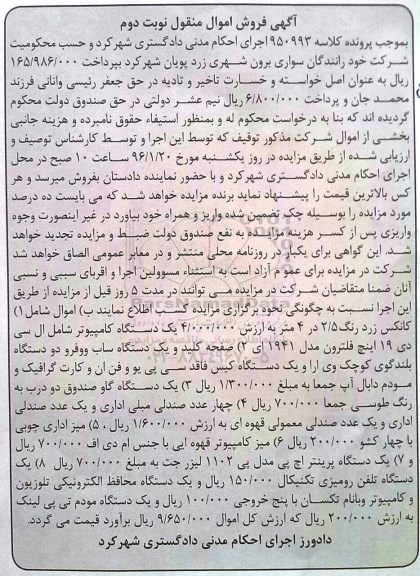 آگهی فروش اموال منقول نوبت دوم
بموجب پرونده کلاسه ۹۵۰۹۹۳ اجرای احکام مدنی دادگستری شهرکرد و حسب محکومیت
شرکت خود رانندگان سواری برون شهری زرد پویان شهرکرد بپرداخت ۱۶۵/۹۸۶/۰۰۰
ریال به عنوان اصل خواسته و خسارت تاخیر و تادیه در حق جعفر رئیسی وانانی فرزند
محمد جان و پرداخت ۶/۸۰۰/۰۰۰ ریال نیم عشر دولتی در حق صندوق دولت محکوم
گردیده اند که بنا به درخواست محکوم له و بمنظور استیفاء حقوق نامبرده و هزینه جانبی
بخشی از اموال شرکت مذکور توقیف که توسط این اجرا و توسط کارشناس توصیف و
ارزیابی شده از طریق مزایده در روز یکشنبه مورخ ۹۶/۱/۲۰ ساعت ۱۰ صبح در محل
اجرای احکام مدنی دادگستری شهرکرد و با حضور نماینده دادستان بفروش میرسد و هر
کس بالاترین قیمت را پیشنهاد نماید برنده مزایده خواهد شد که می بایست ده درصد
مورد مزایده را بوسیله چک تضمین شده واریز و همراه خود بیاورد در غیر اینصورت وجوه
واریزی پس از کسر هزینه مزایده به نفع صندوق دولت ضبط و مزایده تجدید خواهد
شد. این گواهی برای یکبار در روزنامه محلی منتشر و در معابر عمومی الصاق خواهد شد
شرکت در مزایده برای عموم آزاد است به استثناء مسوولین اجرا و اقربای سببی و نسبی
آنان ضمنا متقاضیان شرکت در مزایده می توانند در مدت ۵ روز قبل از مزایده از طریق
این اجرا نسبت به چگونگی نحوه برگزاری مزایده کسب اطلاع نمایند ب) اموال شامل ۱)
کانکس زرد رنگ ۲/۵ در ۴ متر به ارزش ۴/۰۰۰/۰۰۰ یک دستگاه کامپیوتر شامل ال سی
دی ۱۹ اینچ فلترون مدل ۱۹۴۱ ای ۲) صفحه کلید و یک دستگاه ساب ووفرو دو دستگاه
بلندگوی کوچک وی ارا و یک دستگاه کیس فاقد سی پی یو و فن ان و کارت گرافیک و
مودم دابال آپ جمعا به مبلغ ۱/۳۰۰/۰۰۰ ریال ۳) یک دستگاه گاو صندوق دو درب به
رنگ طوسی جمعا ۷۰۰/۰۰۰ ریال ۴) چهار عدد صندلی مبلی اداری و یک عدد صندلی
اداری و یک عدد صندلی معمولی قهوه ای به ارزش ۱/۶۰۰/۰۰۰ ریال ، ۵) میز اداری چوبی
با چهار کشو ۲۰۰/۰۰۰ ریال ۶) میز کامپیوتر قهوه ایی با جنس ام دی اف ۷۰۰/۰۰۰ ریال
و ۷) یک دستگاه پرینتر اچ پی مدل پی ۱۱۰۲ لیزر جت به مبلغ ۷۰۰/۰۰۰ ریال ۸) یک
دستگاه تلفن رومیزی تکنیکال ۱۵۰/۰۰۰ ریال و یک دستگاه محافظ الکترونیکی تلوزیون
و کامپیوتر وبانام تکسان با پنج خروجی ۱۰۰/۰۰۰ ریال و یک دستگاه مودم تی پی لینک
به ارزش ۲۰۰/۰۰۰ ریال که ارزش کل اموال ۹/۶۵۰/۰۰۰ ریال برآورد قیمت می گردد.
دادورز اجرای احکام مدنی دادگستری شهرکرد